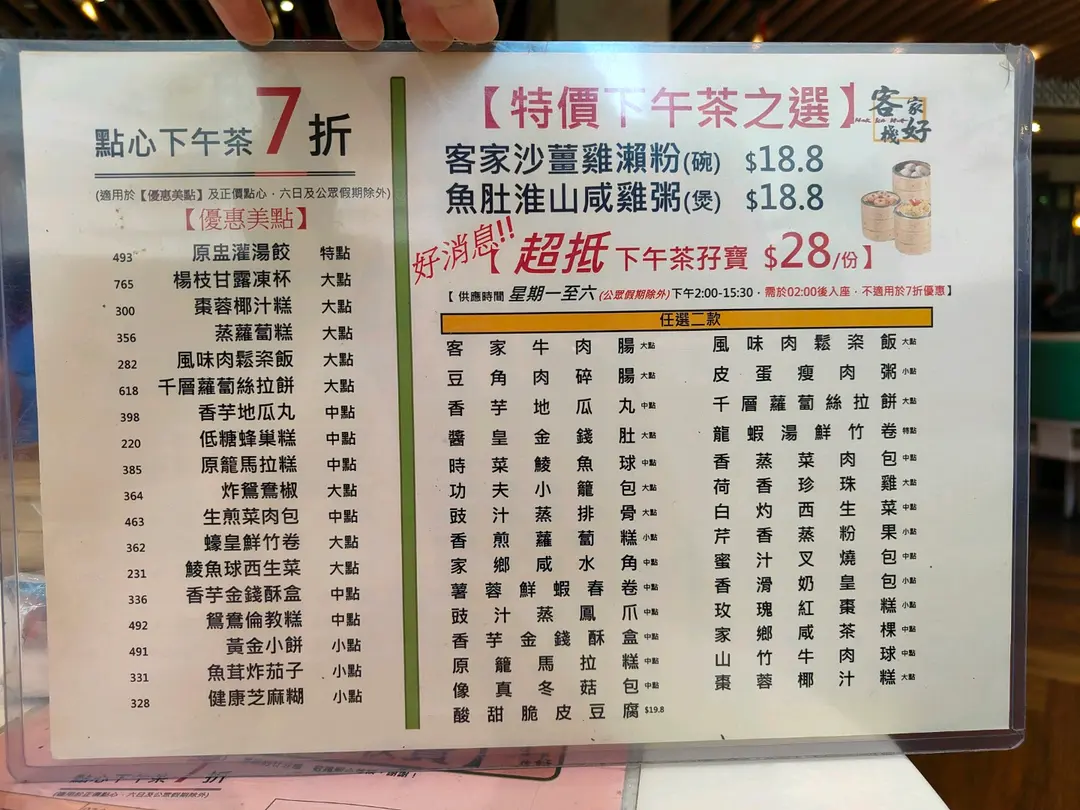 點心下午茶7折
(適用於【優惠美點】及正價點心，六日及公眾假期除外)
【優惠美點】
493 原盅灌湯餃 特點
765 楊枝甘露凍杯 大點
300 棗蓉椰汁糕 大點
356 蒸蘿蔔糕 大點
282 風味肉鬆粢飯 大點
618 千層蘿蔔絲拉餅 大點
398 香芋地瓜丸 中點
220 低糖蜂巢糕 中點
385 原籠馬拉糕 中點
364 炸鴛鴦椒 大點
463 生煎菜肉包 中點
362 蠔皇鮮竹卷 大點
231 鯪魚球西生菜 大點
336 香芋金錢酥盒 中點
492 鴛鴦倫教糕 中點
491 黃金小餅 小點
331 魚茸炸茄子 小點
328 健康芝麻糊 小點
【特價下午茶之選】
客家好棧
客家沙薑雞瀨粉(碗) $18.8
魚肚淮山咸雞粥(煲) $18.8
好消息!!
【超抵下午茶孖寶 $28/份】
【供應時間 星期一至六 (公眾假期除外) 下午2:00-15:30，需於02:00後入座，不適用於7折優惠】
任選二款
客家牛肉腸 大點
豆角肉碎腸 大點
香芋地瓜丸 中點
醬皇金錢肚 大點
時菜鯪魚球 中點
功夫小籠包 大點
豉汁蒸排骨 大點
香煎蘿蔔糕 小點
家鄉咸水角 中點
薯蓉鮮蝦春卷 中點
豉汁蒸鳳爪 中點
香芋金錢酥盒 中點
原籠馬拉糕 中點
像真冬菇包 中點
酸甜脆皮豆腐 $19.8
風味肉鬆粢飯 大點
皮蛋瘦肉粥 小點
千層蘿蔔絲拉餅 大點
龍蝦湯鮮竹卷 特點
香蒸菜肉包 中點
荷香珍珠雞 大點
白灼西生菜 中點
芹香蒸粉果 小點
蜜汁叉燒包 中點
香滑奶皇包 小點
玫瑰紅棗糕 小點
家鄉咸茶粿 中點
山竹牛肉球 中點
棗蓉椰汁糕 大點
點心下午茶7折
(適用於【優惠美點】及正價點心，六日及公眾假期除外)